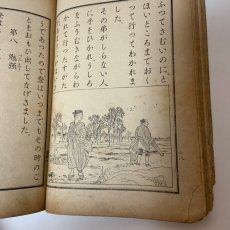 ふつてさむいのにと
ほいところまでおく
つて行つてわかれま
した。
その弟がしらない人
に手をひかれうしろ
をふりむきながらわ
かれて行つたすがた
うであつたので登はいつまでもその時のこ
とをおもひ出してなげきました。
第八 勉強